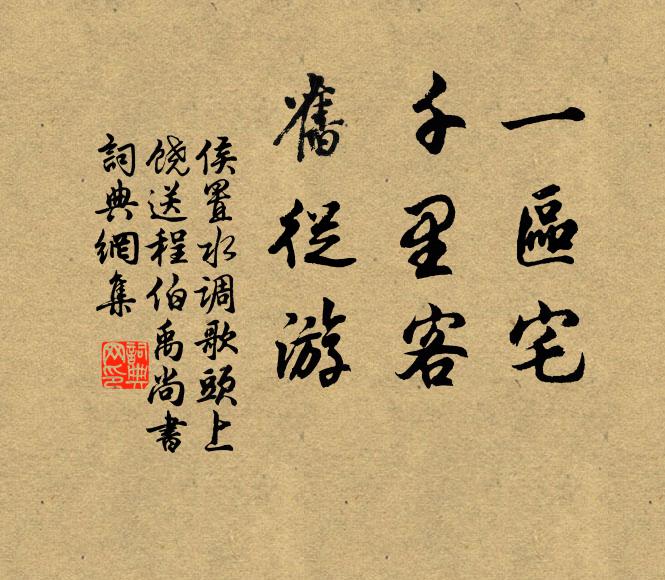 一區宅
千里客
舊從游
侯置水调歌頭上
饶送程伯禹尚書
詞典網集
詞典网印